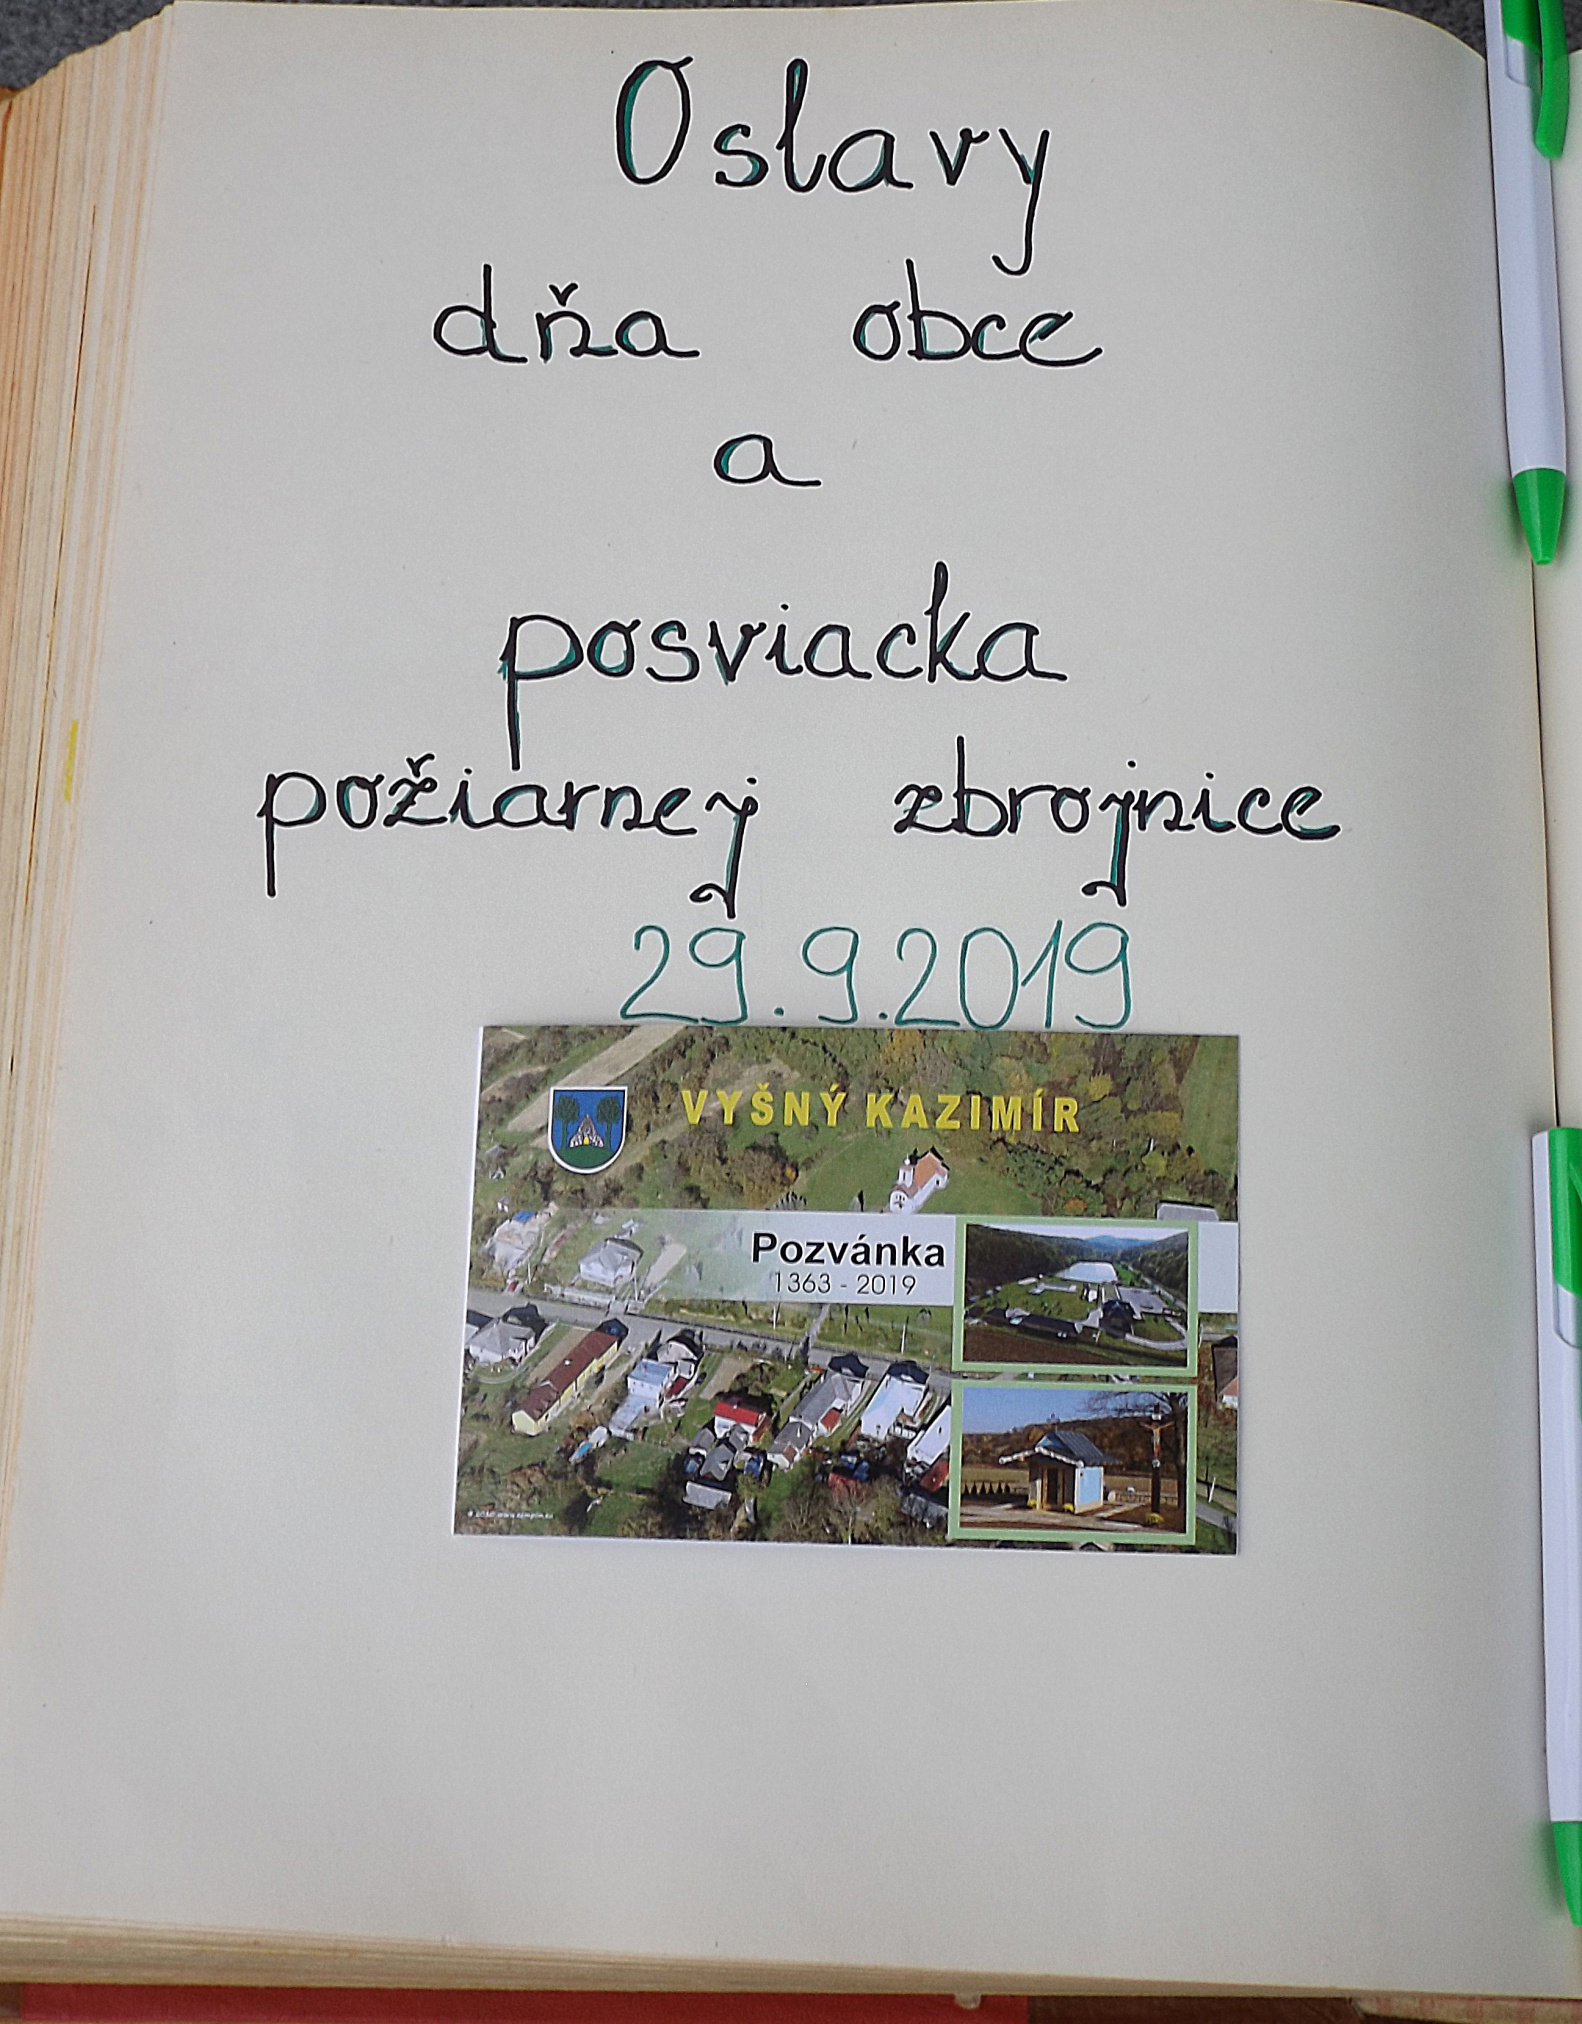 Oslavy
dňa obce
a
posviacka
požiarnej zbrojnice
29.9.2019
VYŠNÝ KAZIMÍR
Pozvánka
1363 - 2019